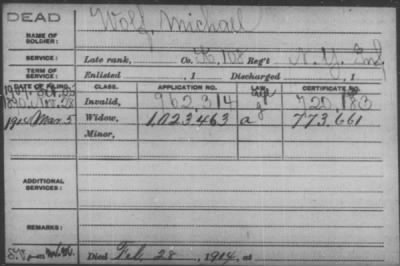 DEAD
Wolf, Michael
NAME OF SOLDIER:
SERVICE: Late rank, Co. K, 108 Reg't N. Y. Inf.
TERM OF SERVICE: Enlisted , 1 Discharged , 1
DATE OF FILING. CLASS. APPLICATION NO. LAW. CERTIFICATE NO.
1890, Nov. 28 Invalid, 962,314 720,183
1914 Mar. 5 Widow, 1,023,463 a 773,661
Minor,
ADDITIONAL SERVICES:
REMARKS:
Died Feb. 28, 1914, at